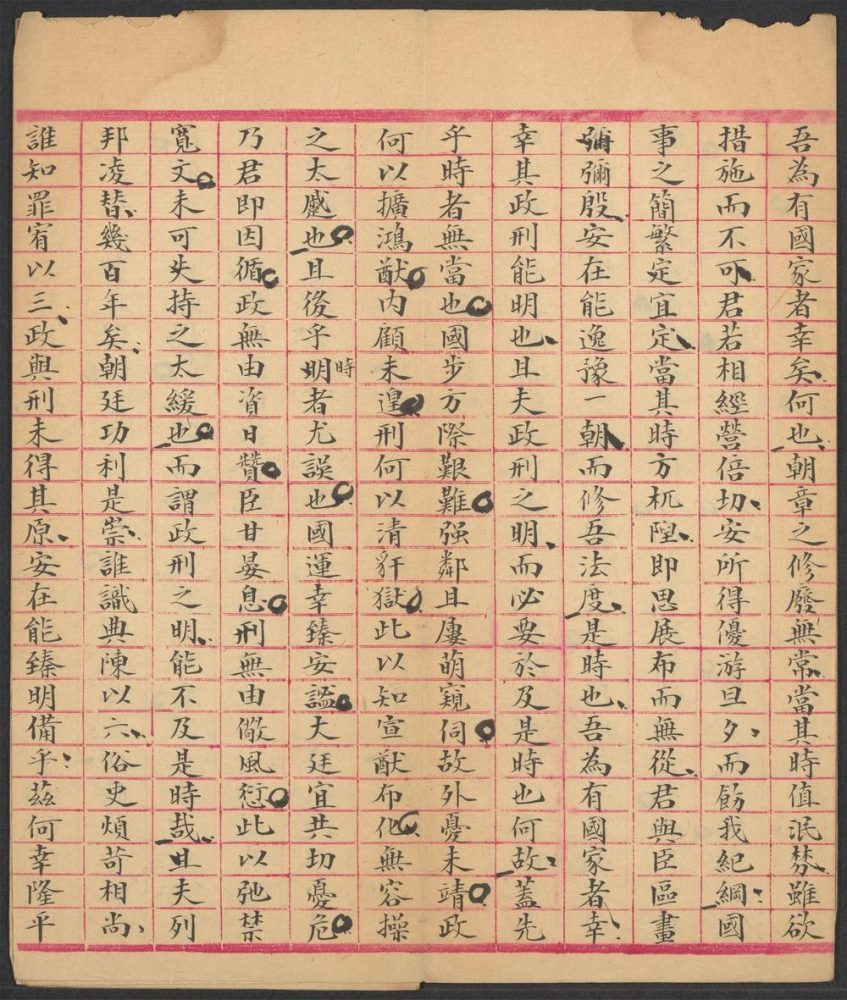 吾為有國家者幸矣何也朝章之修廢無常當其時值泯棼雖欲
措施而不可君若相經營倍切安所得優游旦夕而飭我紀綱國
事之簡繁定宜定當其時方杌隉即思展布而無從君與臣區畫
彌彌殷安在能逸豫一朝而修吾法度是時也吾為有國家者幸
幸其政刑能明也且夫政刑之明而必要於及是時也何故蓋先
乎時者無當也國步方際艱難强鄰且屢萌窺伺故外憂未靖政
何以擴鴻猷內顧未遑刑何以清豻獄此以知宣猷布化無容操
之太蹙也且後乎明時者尤誤也國運幸臻安謐大廷宜共切憂危
乃君即因循政無由資日贊臣甘晏息刑無由儆風愆此以弛禁
寬文未可失持之太緩也而謂政刑之明能不及是時哉且夫列
邦凌替幾百年矣朝廷功利是崇誰識典陳以六俗吏煩苛相尚
誰知罪宥以三政與刑未得其原安在能臻明備乎茲何幸隆平